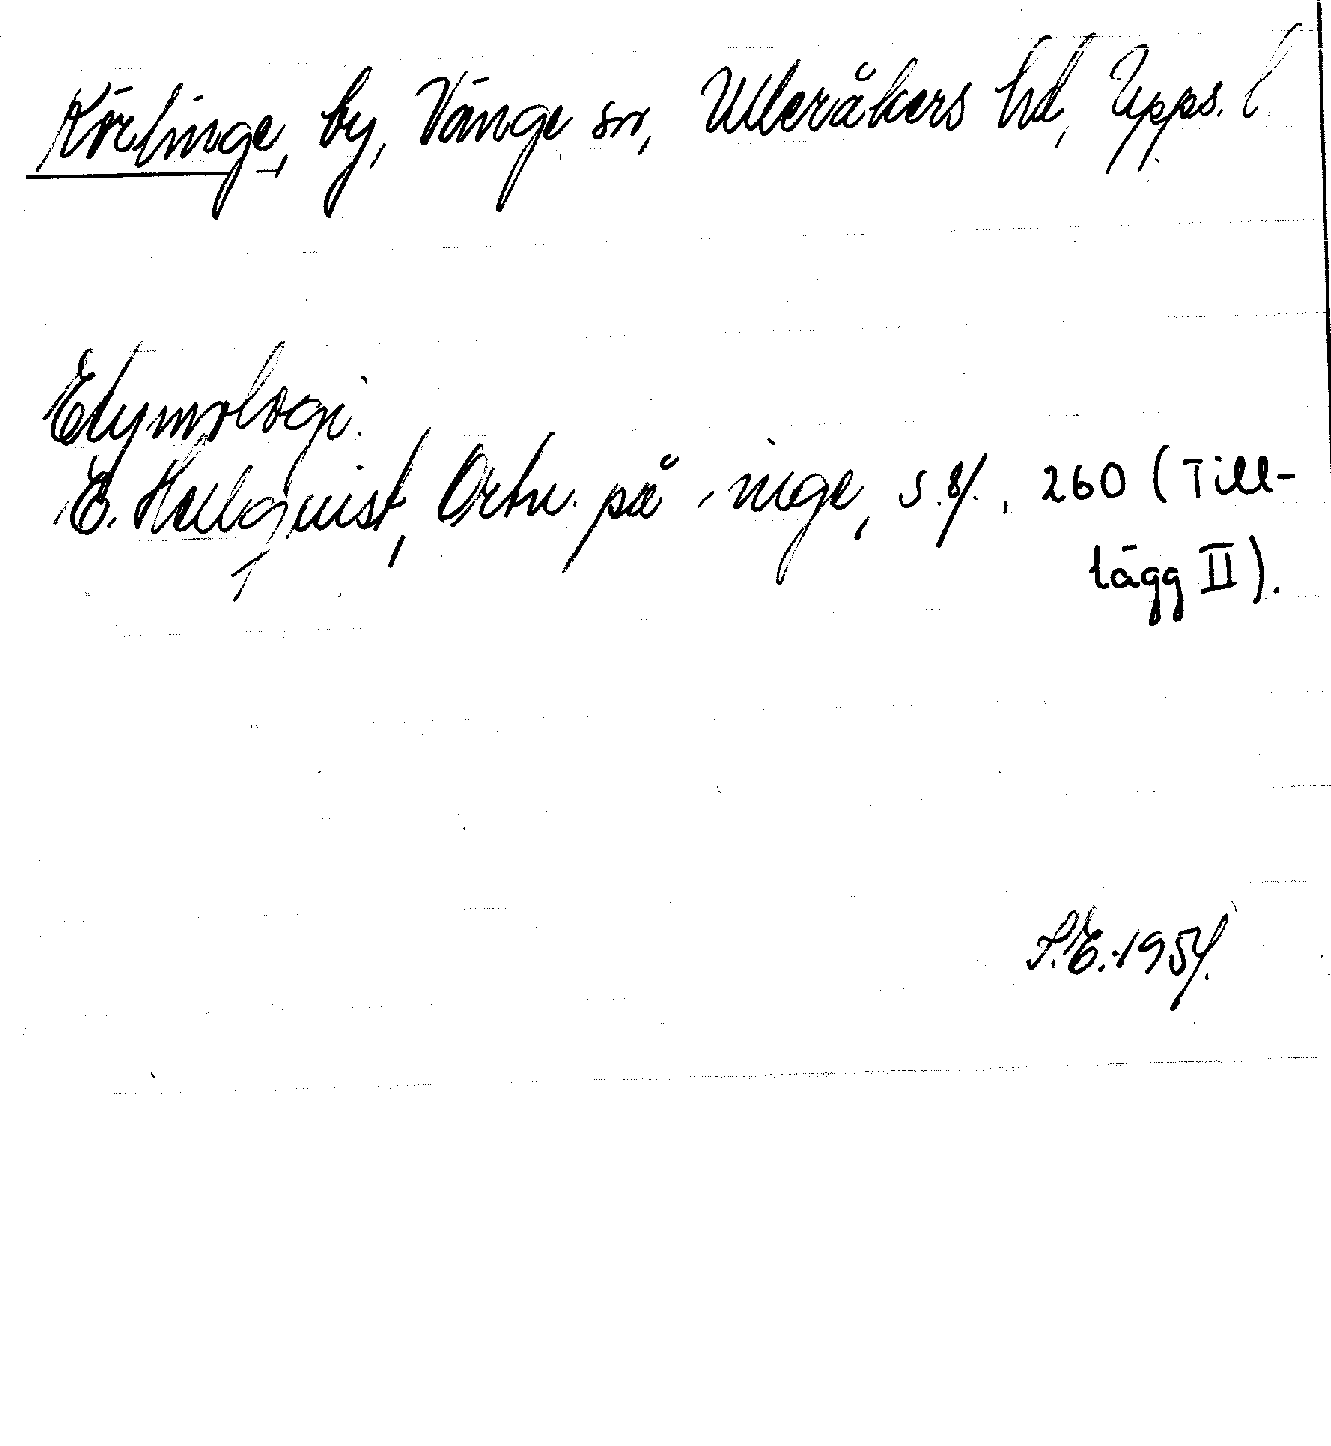 Körlinge, by, Vänge sn, Ulleråkers hd, Upps. l
Etymologi.
E. Hellquist, Ortn. på -inge, s. 84, 260 (Till-
lägg II).
S.E. 1954.